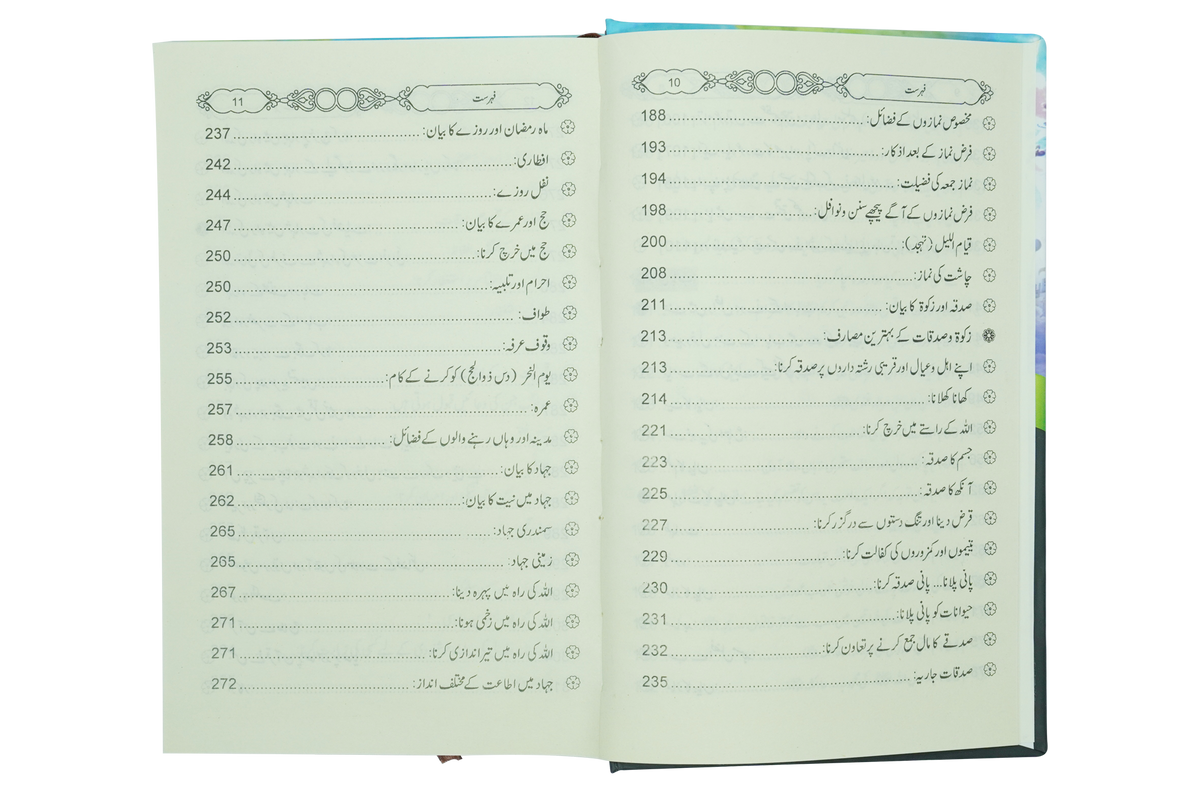 10 فہرست
مخصوص نمازوں کے فضائل: 188
فرض نماز کے بعد اذکار: 193
نماز جمعہ کی فضیلت: 194
فرض نمازوں کے آگے پیچھے سنن و نوافل: 198
قیام اللیل (تہجد): 200
چاشت کی نماز: 208
صدقہ اور زکوۃ کا بیان: 211
زکوۃ و صدقات کے بہترین مصارف: 213
اپنے اہل و عیال اور قریبی رشتہ داروں پر صدقہ کرنا: 213
کھانا کھلانا: 214
اللہ کے راستے میں خرچ کرنا: 221
جسم کا صدقہ: 223
آنکھ کا صدقہ: 225
قرض دینا اور تنگ دستوں سے درگزر کرنا: 227
یتیموں اور کمزوروں کی کفالت کرنا: 229
پانی پلانا... پانی صدقہ کرنا: 230
حیوانات کو پانی پلانا: 231
صدقے کا مال جمع کرنے پر تعاون کرنا: 232
صدقات جاریہ: 235
11 فہرست
ماہ رمضان اور روزے کا بیان: 237
افطاری: 242
نفل روزے: 244
حج اور عمرے کا بیان: 247
حج میں خرچ کرنا: 250
احرام اور تلبیہ: 250
طواف: 252
وقوف عرفہ: 253
یوم النحر (دس ذوالحج) کو کرنے کے کام: 255
عمرہ: 257
مدینہ اور وہاں رہنے والوں کے فضائل: 258
جہاد کا بیان: 261
جہاد میں نیت کا بیان: 262
سمندری جہاد: 265
زمینی جہاد: 265
اللہ کی راہ میں پہرہ دینا: 267
اللہ کی راہ میں زخمی ہونا: 271
اللہ کی راہ میں تیر اندازی کرنا: 271
جہاد میں اطاعت کے مختلف انداز: 272